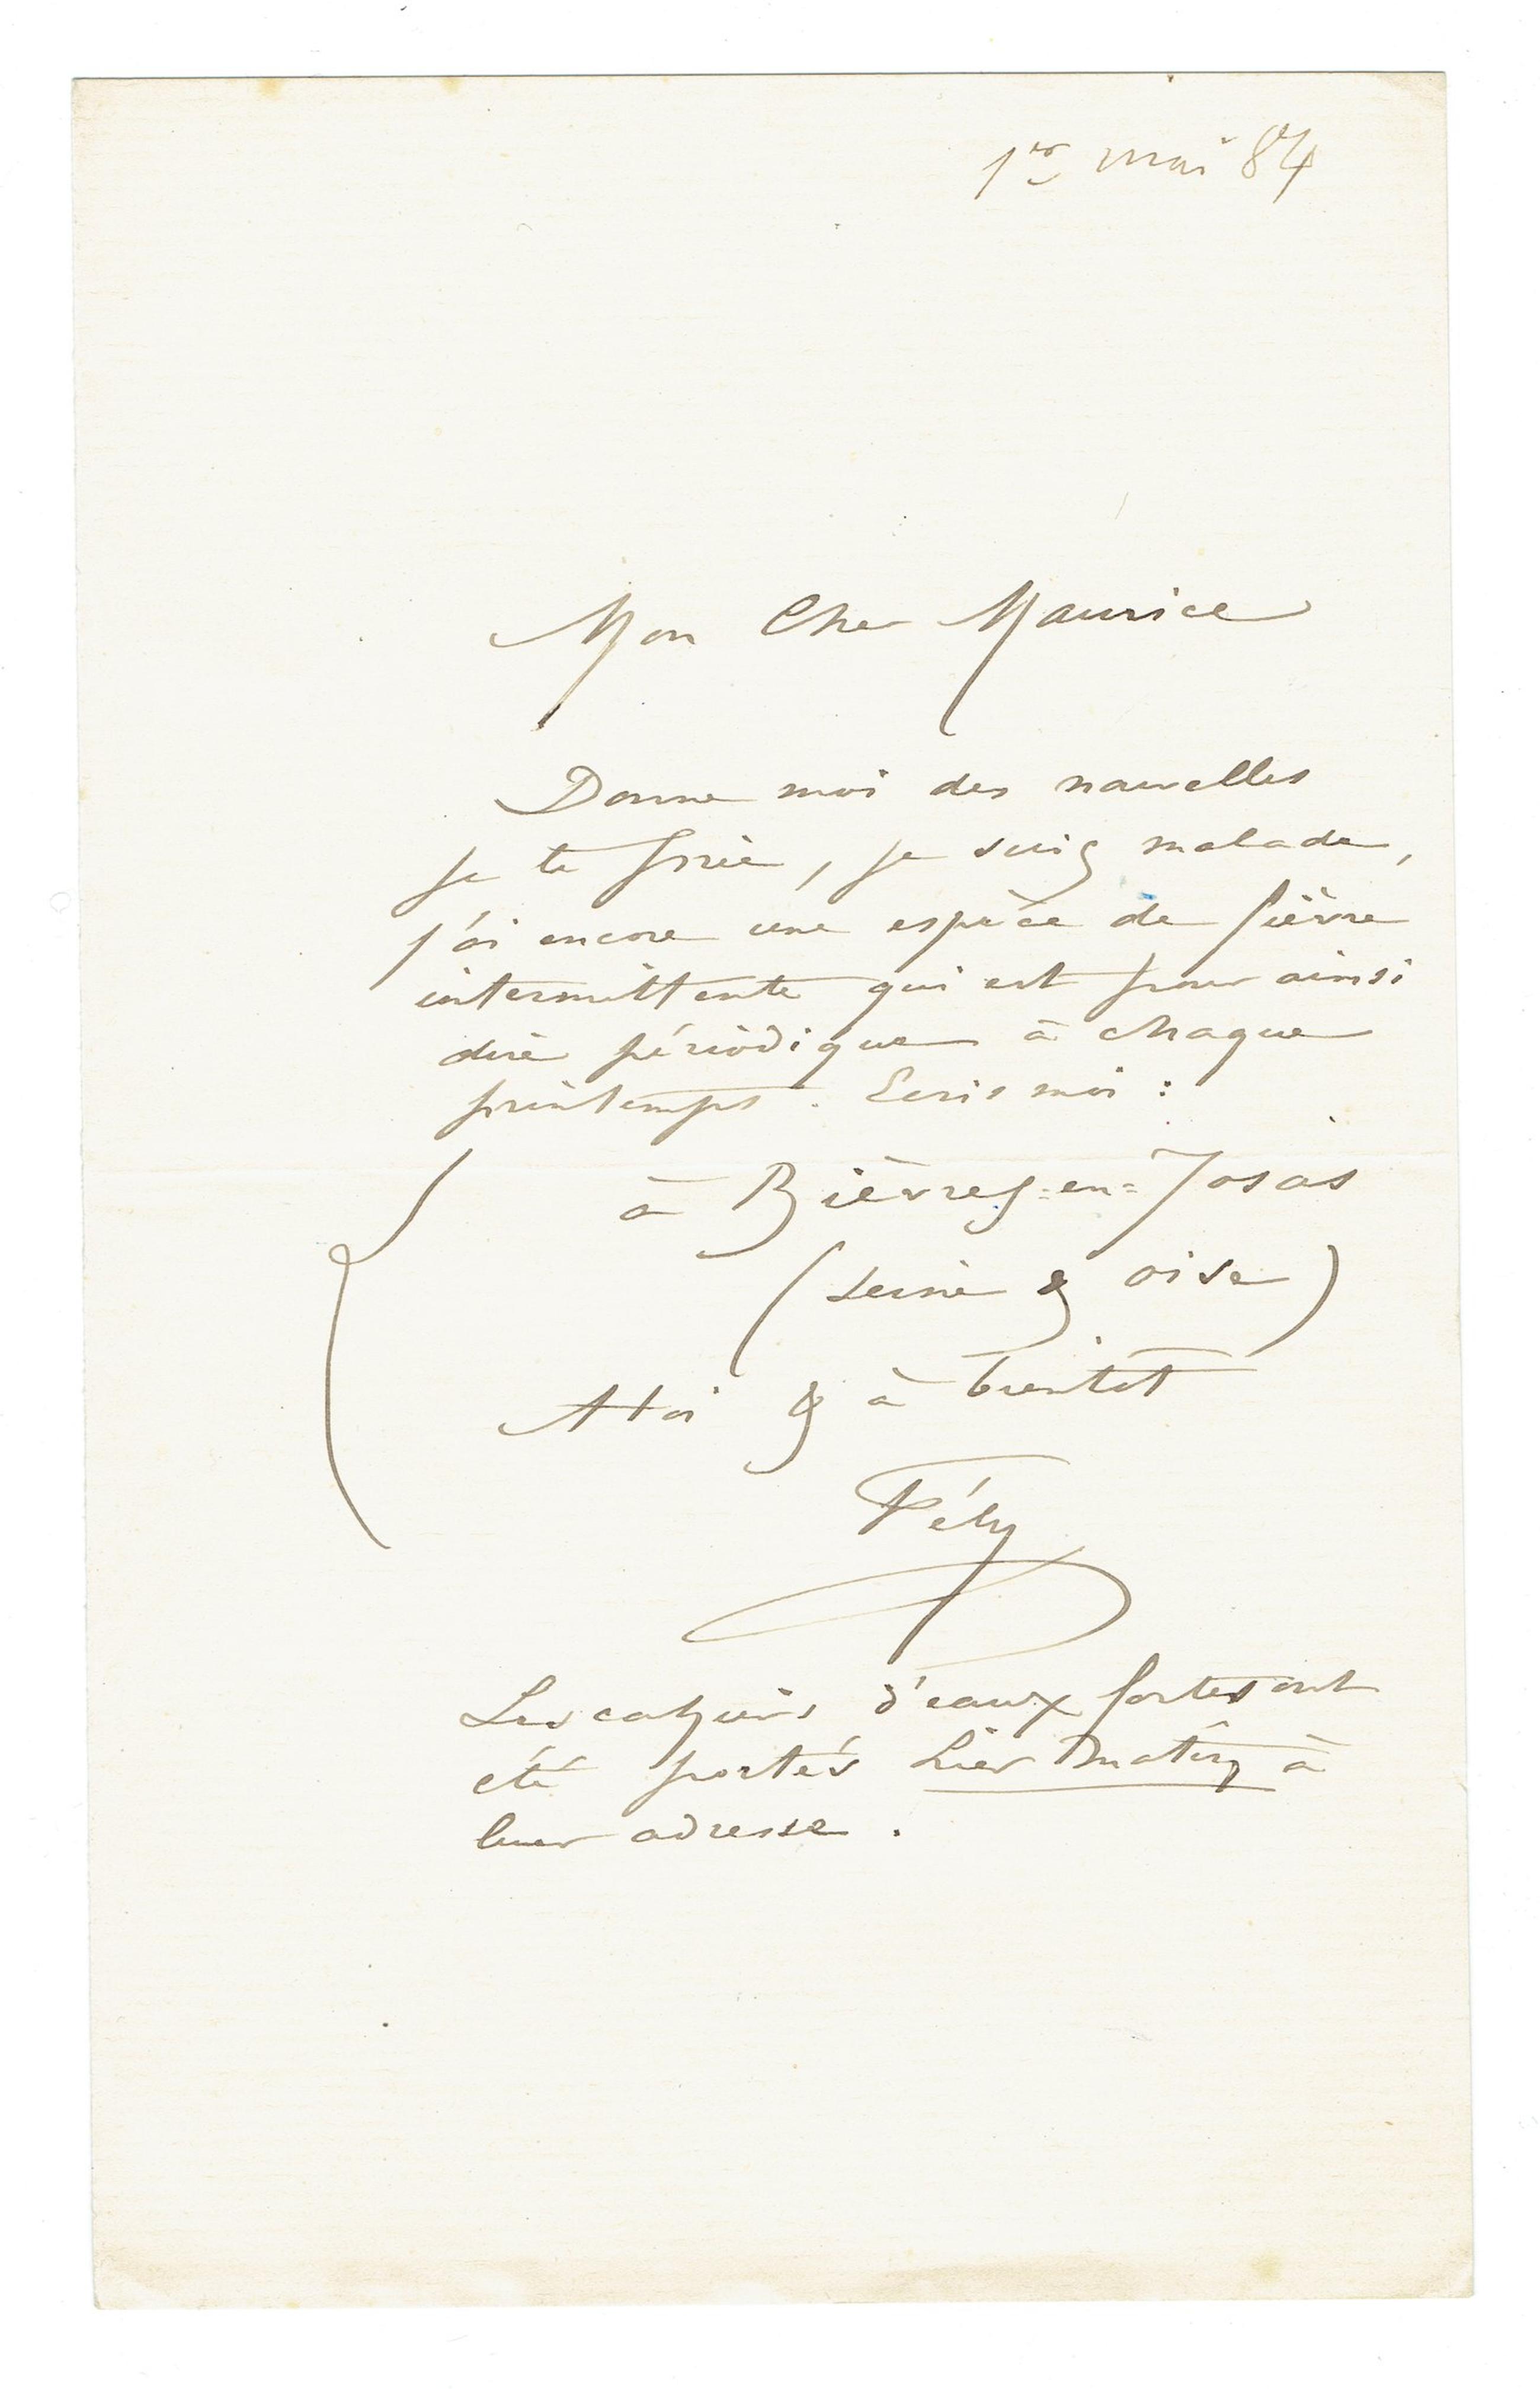 1er mai 84
Mon Cher Maurice
Donne moi des nouvelles
je te prie, je suis malade,
j'ai encore une espèce de fièvre
intermittente qui est pour ainsi
dire périodique à chaque
printemps. Ecris moi :
à Bièvres=en=Josas
(Seine & oise)
A toi & à bientôt
Fély
Les cahiers d'eaux fortes ont
été portés hier matin à
leur adresse.